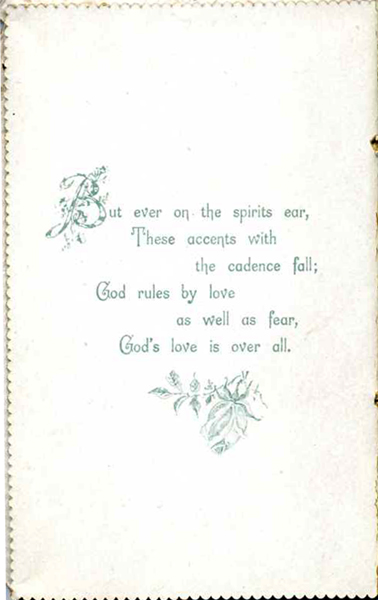 But ever on the spirits ear,
These accents with
the cadence fall;
God rules by love
as well as fear,
God's love is over all.